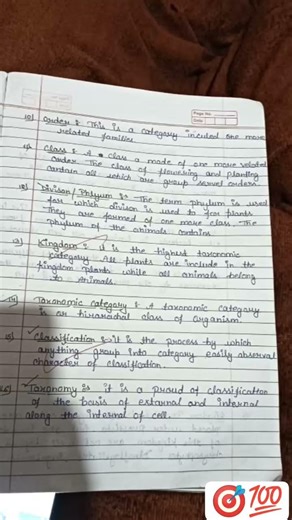 Page No.
Date
10) Order :- This is a category inculed one more
related families
11) Class :- A class a made of one more related
order. The class of flowering and planting
contain all which are group sevrel orders
12) Divison/Phlyum :- The term phylum is used
for which divison is used to few plants
They are formed of one more class. The
phylum of the animals contains
13) Kingdom :- it is the highest taxonomic
category. All plants are include in the
kingdom plants while all animals belong
to animals.
14) Taxonomic category :- A taxonomic category
is or hirarachal class of organism.
15) Classification :- it is the process by which
anything group into category easily observal
character of classification.
Taxonomy is it is a proud of classification
of the basis of external and internal
along the internal of cell.
100